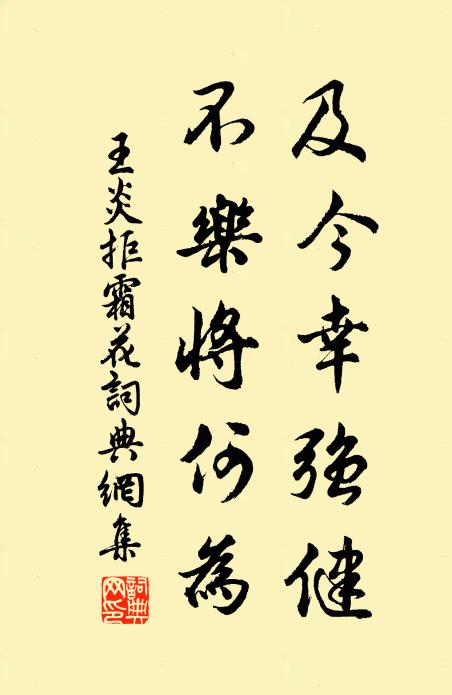 及今幸強健
不樂將何為
王炎拒霜花詞典網集
詞典網印